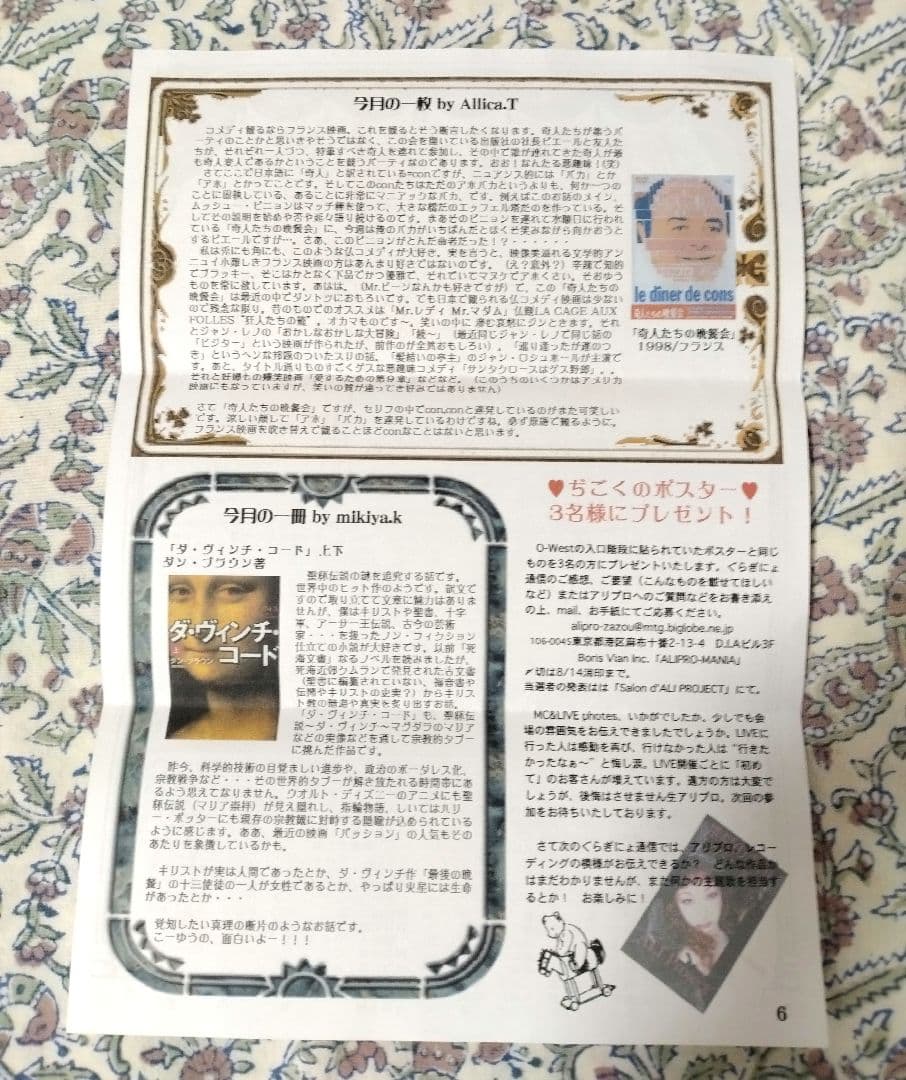 今月の一枚 by Allica.T
コメディ観るならフランス映画。これを観るとそう断言したくなります。奇人たちが集うパ
ーティのことかと思いきやそうではなく、この会を開いている出版社の社長ピエールと友人た
ちが、それぞれ一人づつ、特筆すべき奇人を連れて参加し、その中で誰が連れてきた奇人が最
も奇人変人であるかということを競うパーティなのであります。おお！なんたる悪趣味！(笑)
さてここで日本語に「奇人」と訳されている=conですが、ニュアンス的には「バカ」とか
「アホ」とかってことです。そしてこのconたちはただのアホバカというよりも、何か一つの
ことに固執している、あることに非常にマニアックなバカ、です。例えばこのお話のメイン、
ムッシュー・ピニョンはマッチ棒を使って、大きな橋だのエッフェル塔だのを作っている。そ
してその説明を始めや否や延々語り続けるのです。まあそのピニョンを連れて水曜日に行われ
ている「奇人たちの晩餐会」に、今週は俺のバカがいちばんだとほくそ笑みながら向かおうと
するピエールですが…。さあ、このピニョンがとんだ曲者だった！？・・・・・・
私は兎にも角にも、このような仏コメディが大好き。実を言うと、映像美溢れる文学的アン
ニュイ小難しきフランス映画の方はあんまり好きではないのです。（え？意外？）辛辣で知的
でブラッキー、そこはかとなく下品でかつ優雅、それでいてマヌケでアホくさい。そおゆう
ものを常に欲しています。あはは。（Mr.ビーンなんかも好きですが）で、この「奇人たちの
晩餐会」は最近の中でダントツにおもろいです。でも日本で観られる仏コメディ映画は少ない
ので残念な限り。昔のものでのオススメは「Mr.レディ Mr.マダム」仏題LA CAGE AUX
FOLLES "狂人たちの籠"。オカマものです～。笑いの中に滲む哀愁にグンときます。それ
とジャン・レノの「おかしなおかしな大冒険」「続～」（最近同じジャン・レノで同じ話の
「ビジター」という映画が作られたが、前作のが全然おもしろい）。「巡り逢ったが運のつ
き」というヘンな邦題のついたスリの話。「髪結いの亭主」のジャン・ロシュホールが主演で
す。あと、タイトル通りものすごくゲスな悪趣味コメディ「サンタクロースはゲス野郎」。。
それと妊婦もの爆笑映画「愛するための第9章」などなど。（このうちのいくつかはアメリカ
映画にもなっていますが、笑いの質が違ってき好みではありません）
さて「奇人たちの晩餐会」ですが、セリフの中でcon,conと連発しているのがまた可笑しい
です。涼しい顔して「アホ」「バカ」を連発しているわけですね。必ず原語で観るように。
フランス映画を吹き替えで観ることほどconなことはないと思います。
le dîner de cons
奇人たちの晩餐会
「奇人たちの晩餐会」
1998/フランス
今月の一冊 by mikiya.k
「ダ・ヴィンチ・コード」上下
ダン・ブラウン著
ダ・ヴィンチ・
コード
上
ダン・ブラウン
聖杯伝説の謎を追究する話です。
世界中のヒット作のようです。訳文で
すので取り立てて文章に魅力はありま
せんが、僕はキリストや聖書、十字
軍、アーサー王伝説、古今の芸術
家・・・を扱ったノン・フィクション
仕立ての小説が大好きです。以前「死
海文書」なるノベルを読みましたが、
死海近郊クムランで発見された古文書
（聖書に編纂されていない、福音書や
伝聞やキリストの史実？）からキリス
ト教の経過や真実を炙り出すお話。
「ダ・ヴィンチ・コード」も、聖杯伝
説～ダ・ヴィンチ～マグダラのマリア
などの実像などを通して宗教的タブー
に挑んだ作品です。
昨今、科学的技術の目覚ましい進歩や、政治のボーダレス化、
宗教戦争など・・・その世界的タブーが解き放たれる時間帯にあ
るよう思えてなりません。ウオルト・ディズニーのアニメにも聖
杯伝説（マリア崇拝）が見え隠れし、指輪物語、しいてはハリ
ー・ポッターにも現存の宗教観に対峙する隠喩が込められている
ように感じます。ああ、最近の映画「パッション」の人気もその
あたりを象徴しているかも。
キリストが実は人間であったとか、ダ・ヴィンチ作「最後の晩
餐」の十三使徒の一人が女性であるとか、やっぱり火星には生命
があったとか・・・
覚知したい真理の断片のようなお話です。
こーゆうの、面白いよー！！！
♥ぢごくのポスター♥
3名様にプレゼント！
O-Westの入口階段に貼られていたポスターと同じ
ものを3名の方にプレゼントいたします。ぐらぎにょ
通信のご感想、ご要望（こんなものを載せてほしい
など）またはアリプロへのご質問などをお書き添え
の上、mail、お手紙にてご応募ください。
alipro-zazou@mtg.biglobe.ne.jp
106-0045東京都港区麻布十番2-13-4 D.I.Aビル3F
Boris Vian Inc.「ALIPRO-MANIA」
〆切は8/14消印まで。
当選者の発表はは「Salon d'ALI PROJECT」にて。
MC&LIVE photes、いかがでしたか。少しでも会
場の雰囲気をお伝えできましたでしょうか。LIVEに
行った人は感動を再び、行けなかった人は"行きた
かったなぁ～"と悔し涙。LIVE開催ごとに「初め
て」のお客さんが増えています。遠方の方は大変で
しょうが、後悔はさせません生アリプロ。次回の参
加をお待ちいたしております。
さて次のぐらぎにょ通信では、アリプロ/レコー
ディングの模様がお伝えできるか？　どんな作品か
はまだわかりませんが、また何かの主題歌を担当す
るとか！　お楽しみに！
6